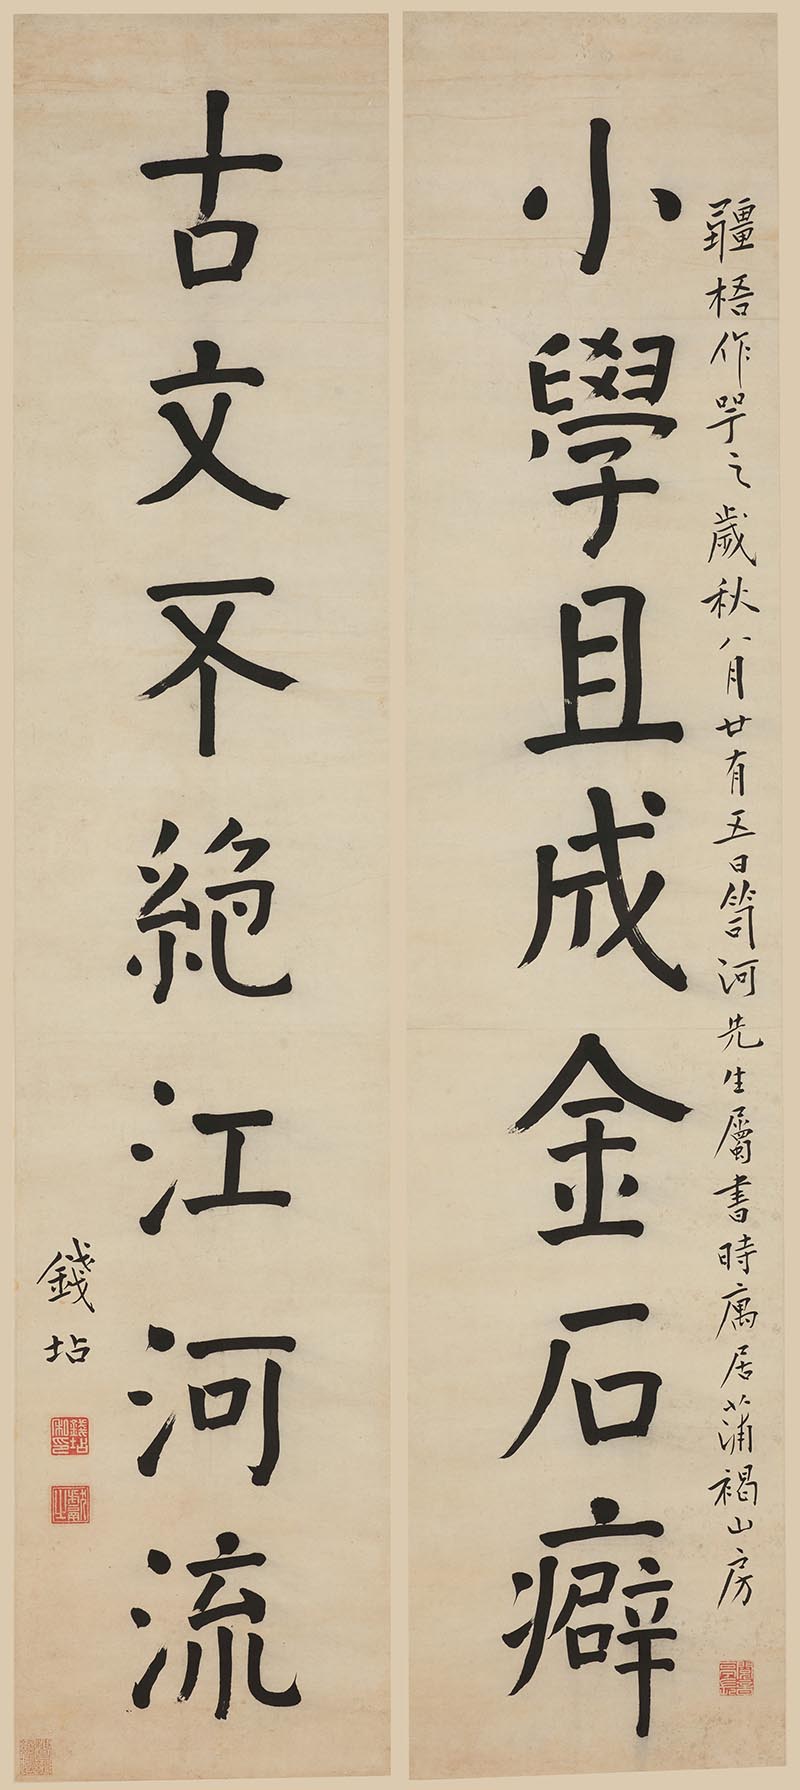 疆梧作咢之歲秋八月廿有五日笥河先生屬書時寓居蒲褐山房
小學且成金石癖
古文不絕江河流
錢坫